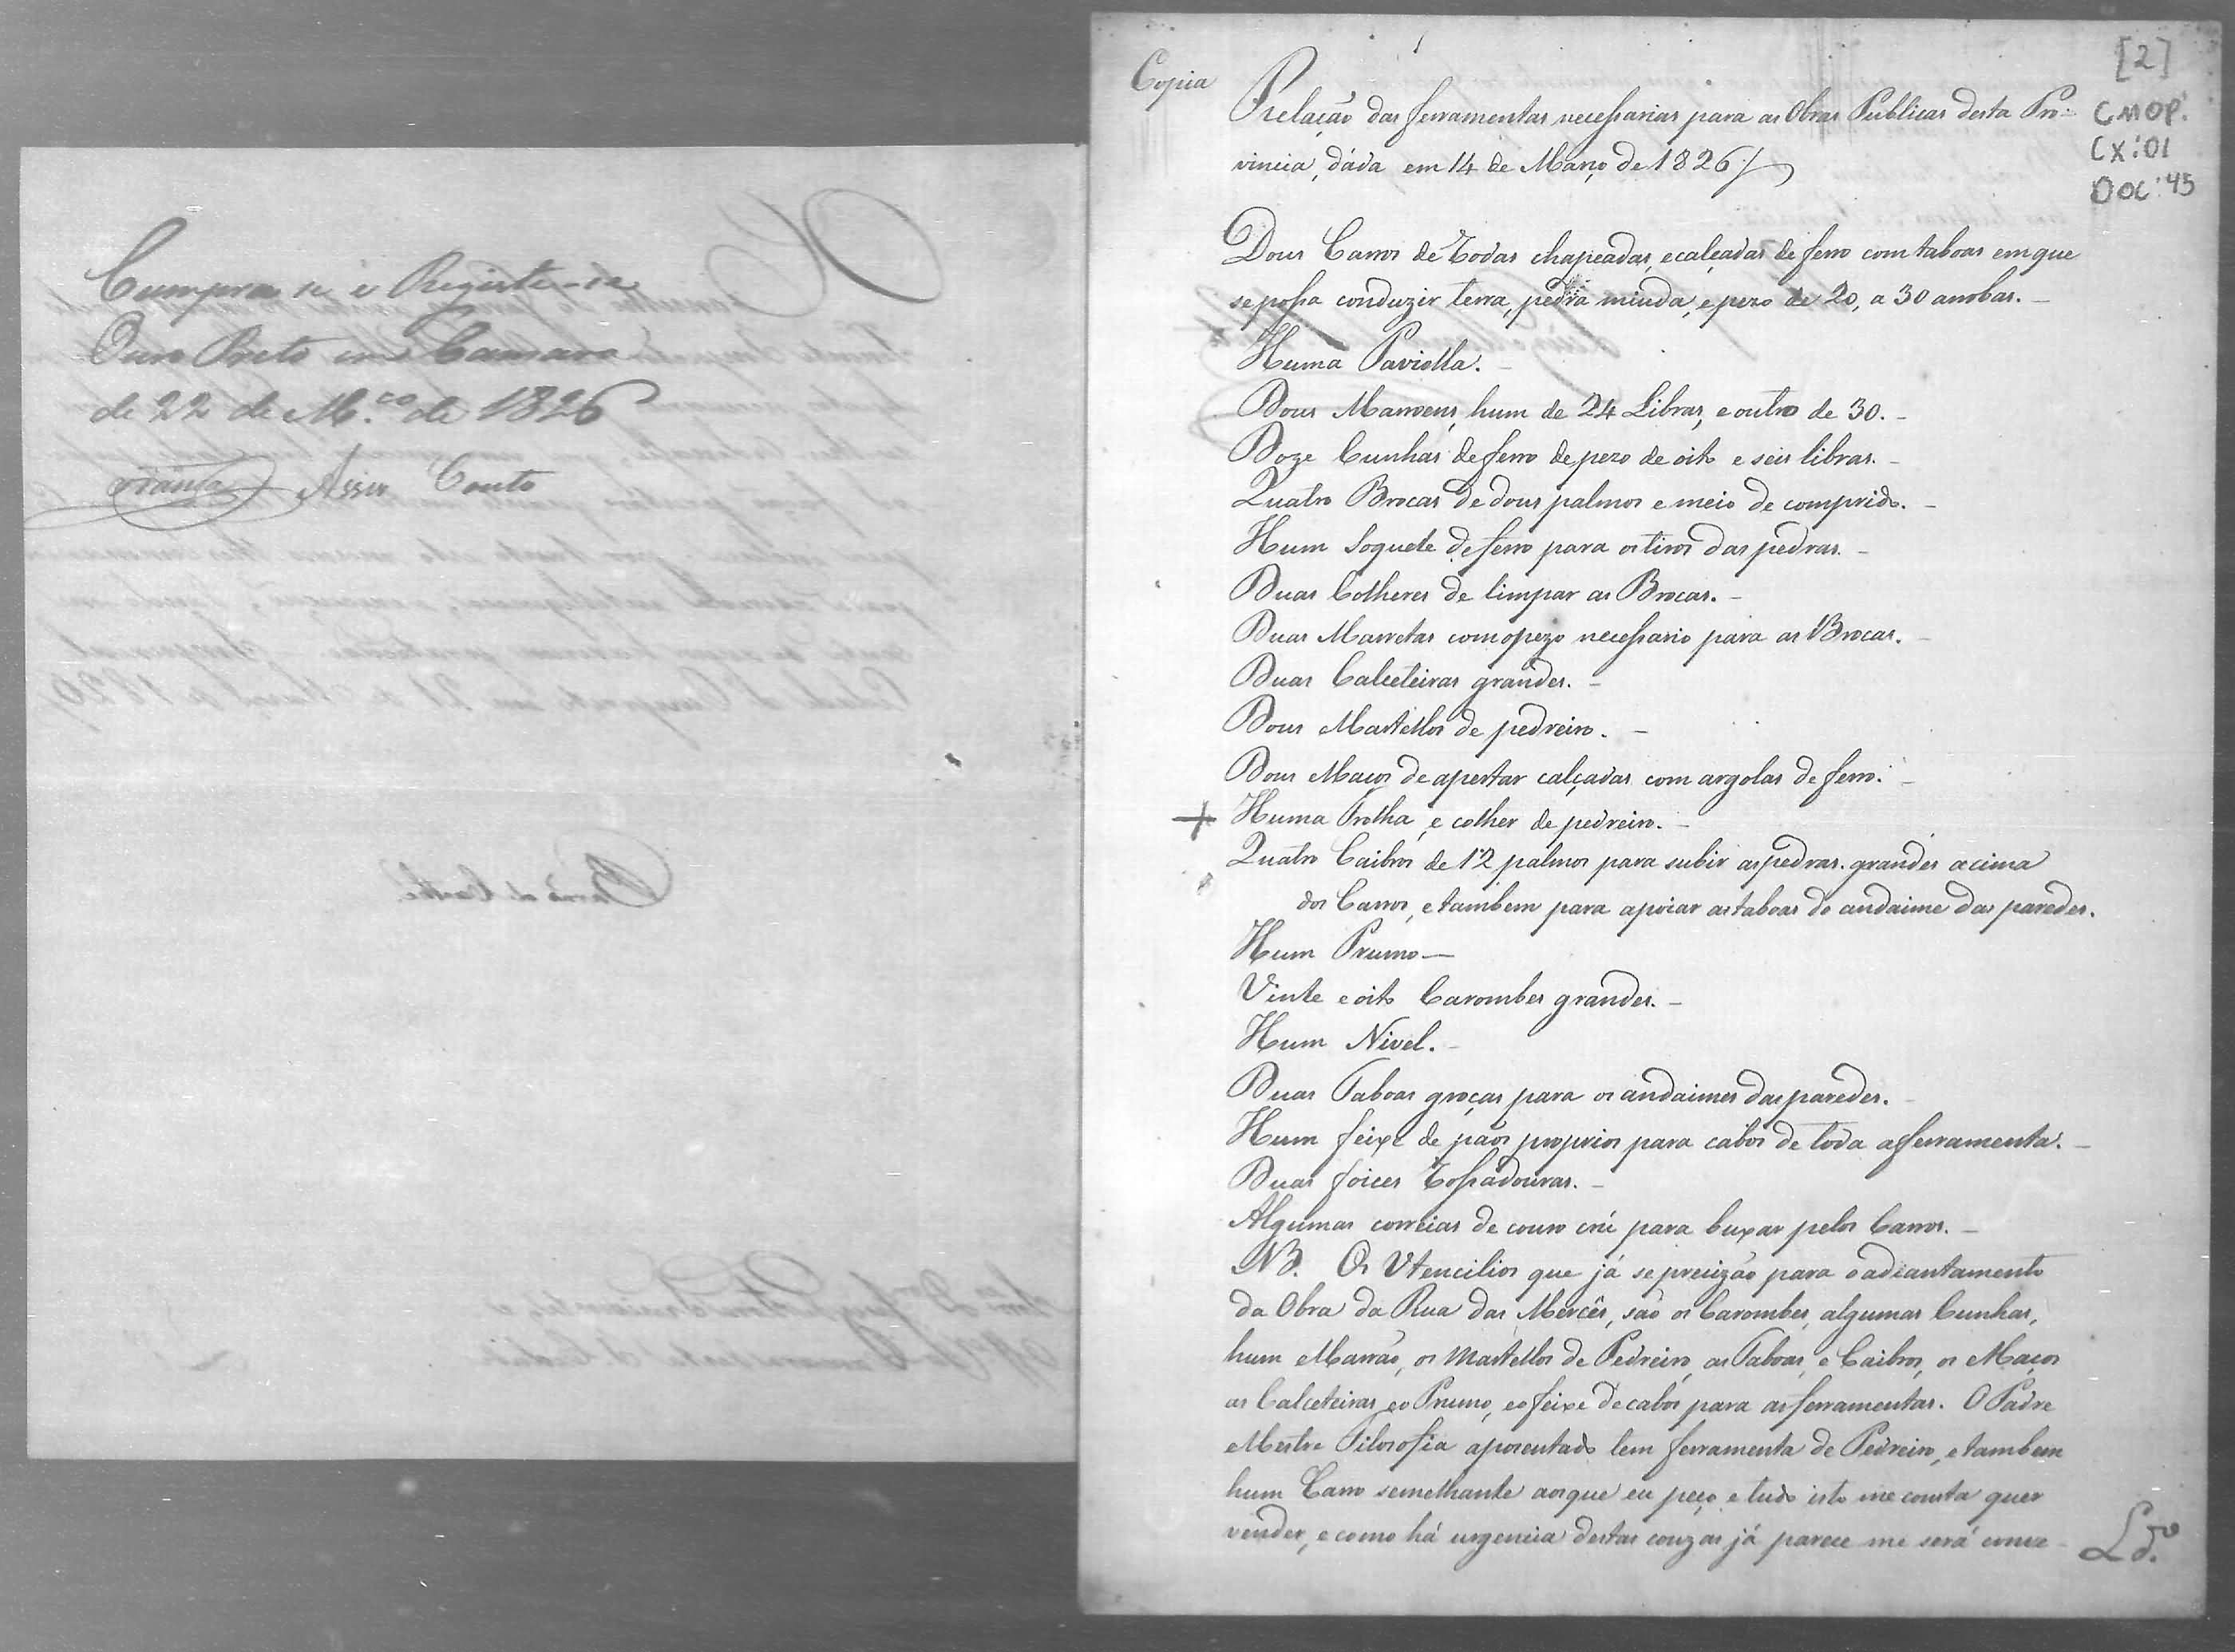 Cumpra se e Registe-se
Ouro Preto em Camara
de 22 de M.ço de 1826
Assis Couto
[2]
CMOP.
CX:01
DOC:45
Copia
Relação das ferramentas necessarias para as Obras Publicas desta Pro-
vincia, dáda em 14 de Março de 1826
Dous Carros de Rodas chapeadas, e calçadas de ferro com taboas em que
se possa conduzir terra, pedra miuda, e pezo de 20, a 30 arrobas.
Huma Paviolla.
Dous Marroens, hum de 24 Libras, e outro de 30.
Doze Cunhas de ferro de pezo de oito e seis libras.
Quatro Brocas de dous palmos e meio de comprido.
Hum Soquete de ferro para os tiros das pedras.
Duas Colheres de limpar as Brocas.
Duas Marretas com o pezo necessario para as Brocas.
Duas Calceteiras grandes.
Dous Martellos de pedreiro.
Dous Maços de apertar calçadas com argolas de ferro.
+ Huma Trolha, e colher de pedreiro.
Quatro Caibros de 12 palmos para subir as pedras grandes acima
dos Carros, e tambem para apoiar as taboas do andaime das paredes.
Hum Prumo
Vinte e oito Carombes grandes.
Hum Nivel.
Duas Taboas groças para os andaimes das paredes.
Hum feixe de páos proprios para cabos de toda a ferramenta.
Duas foices Rossadouras.
Algumas correias de couro crú para buxar pelos Carros.
NB. Os Utencilios que já se precizão para o adeantamento
da Obra da Rua das Mercês, são os Carombes, algumas Cunhas,
hum Marrão, os Martellos de Pedreiro, as Taboas, e Caibros, os Maços
as Calceteiras, e o Prumo, e o feixe de cabos para as ferramentas. O Padre
Mestre Filosofia aposentado tem ferramenta de Pedreiro, e tambem
hum Carro semelhante aos que eu peço, e tudo isto me consta quer
vender, e como há urgencia destas couzas já parece me será